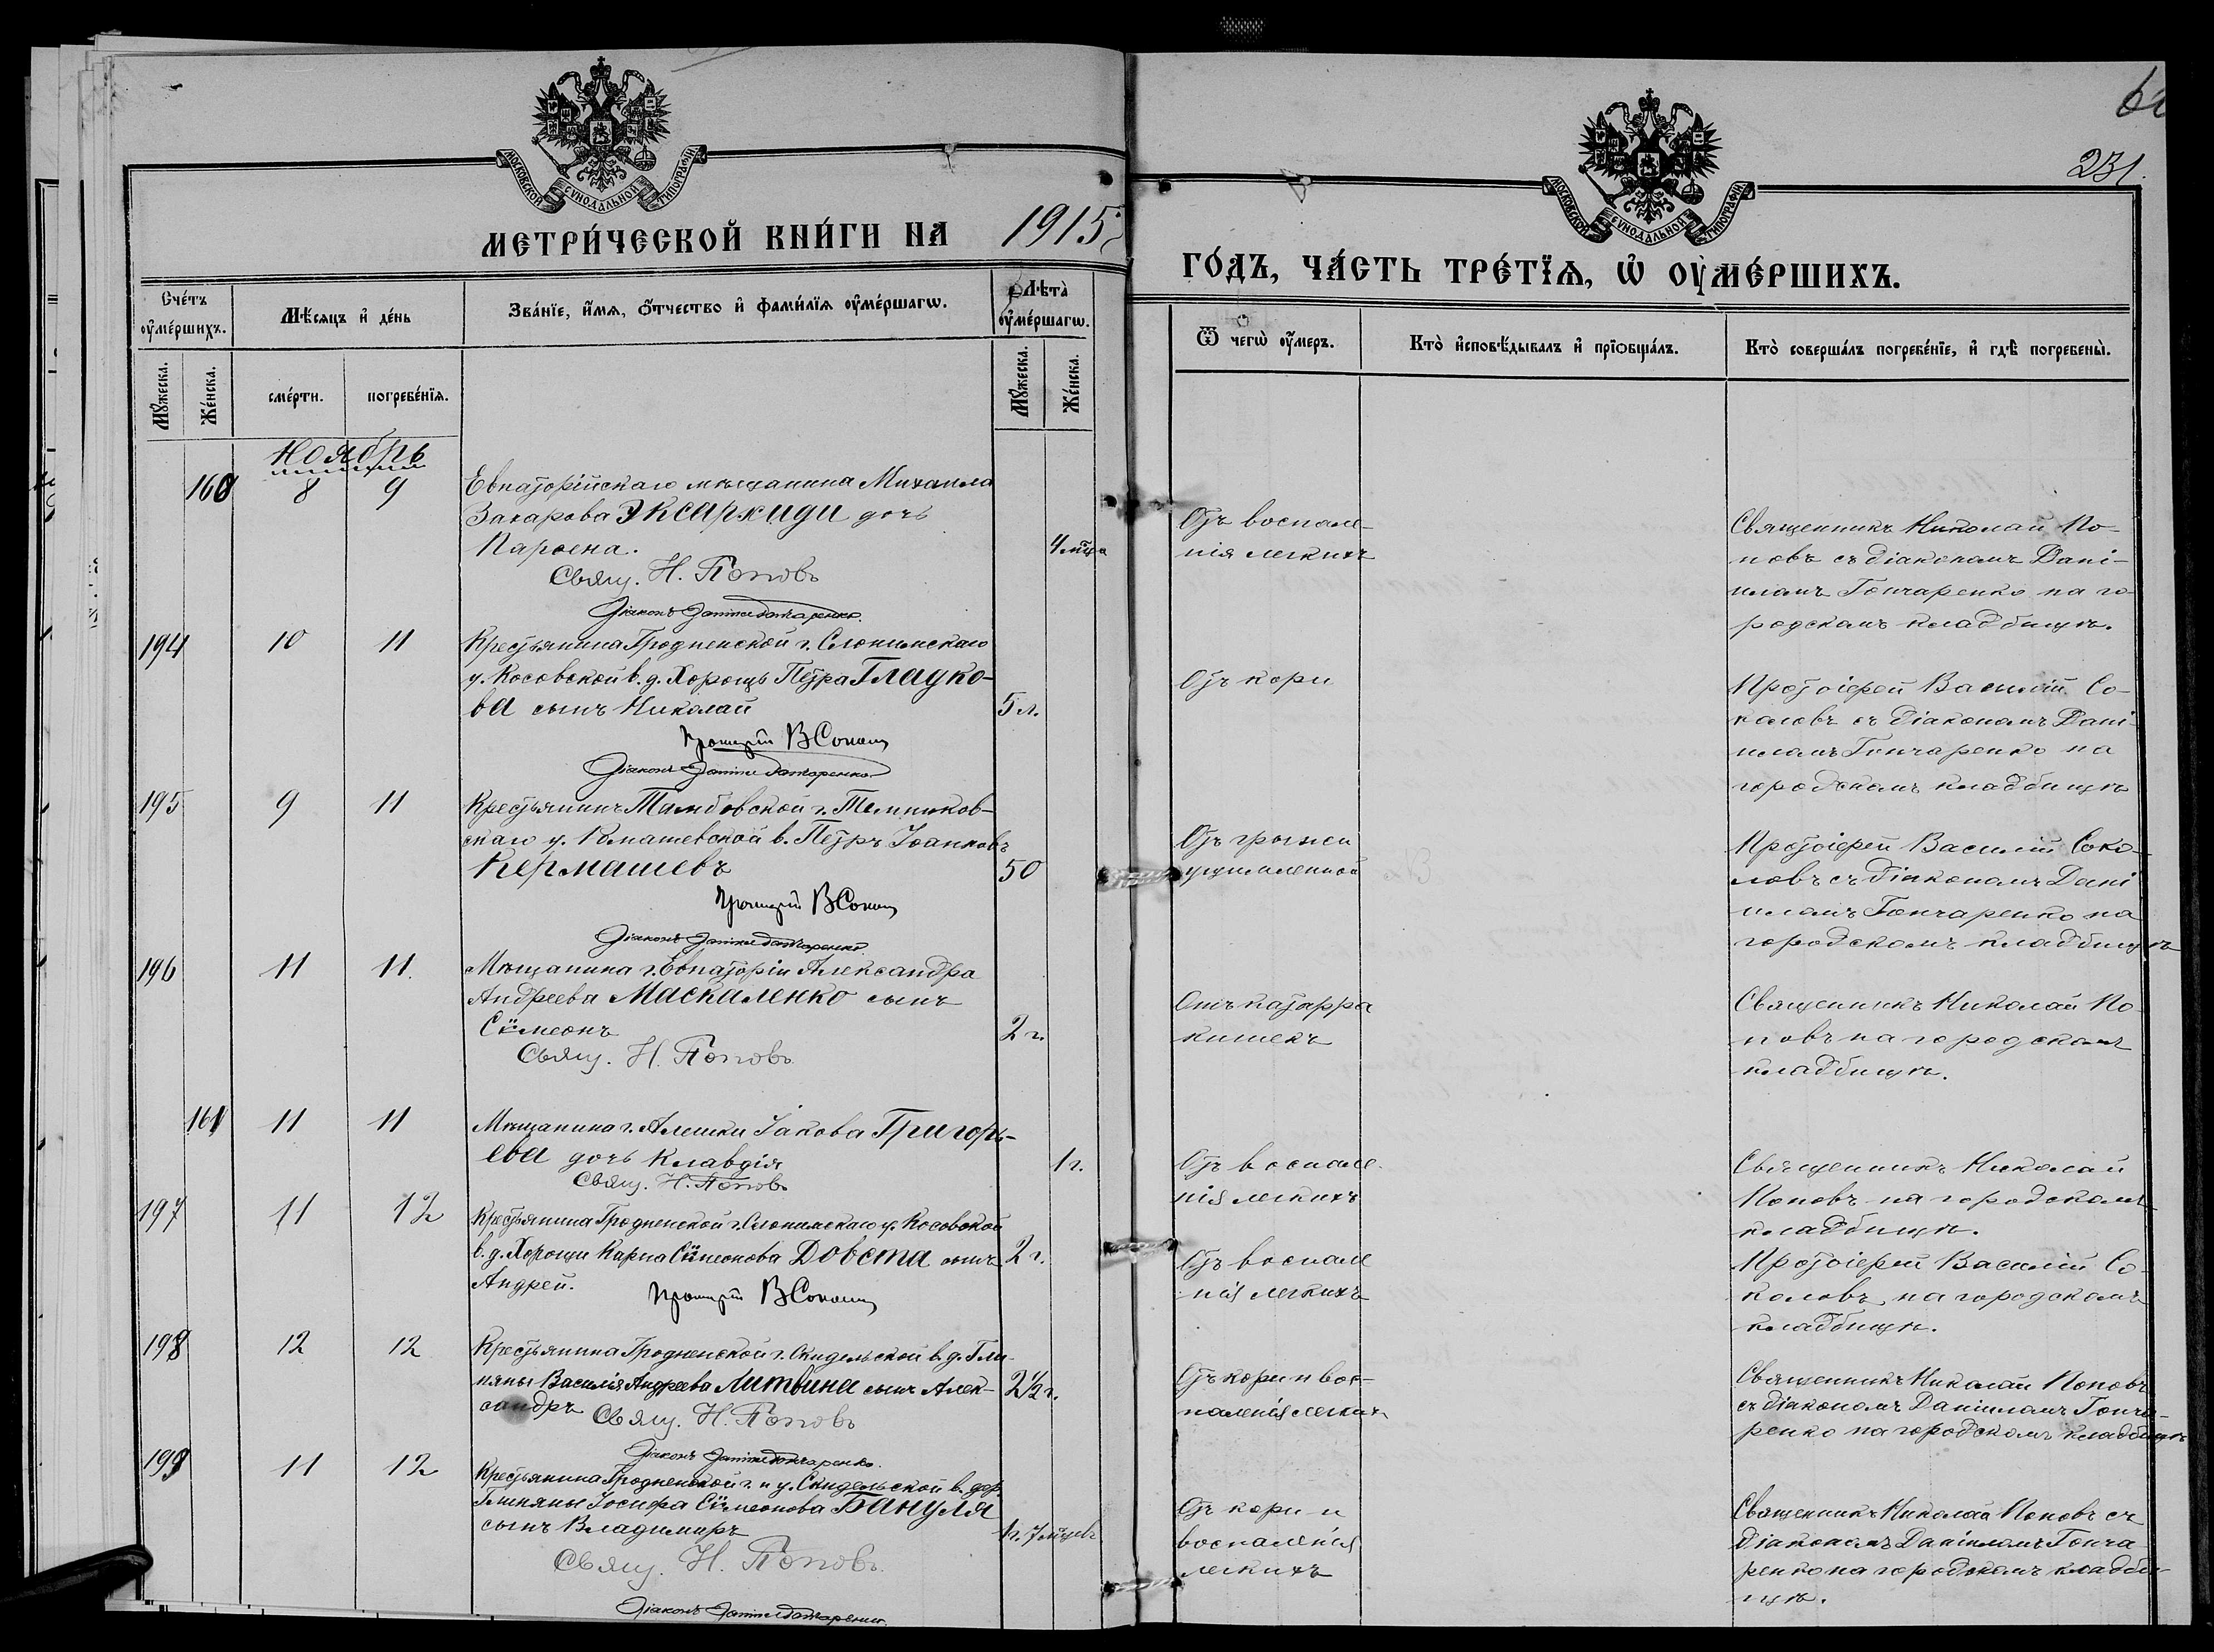 231.
МОСКОВСКОЙ СѴНОДАЛЬНОЙ ТИПОГРАФІИ
МОСКОВСКОЙ СѴНОДАЛЬНОЙ ТИПОГРАФІИ
МЕТРИ́ЧЕСКОЙ КНИ́ГИ НА 1915
ГО́ДЪ, ЧА́СТЬ ТРЕ́ТЇѦ, Ѡ҆ ОУ҆МЕ́РШИХЪ.
Сче́тъ оу҆ме́ршихъ.
Мѣ́сяцъ и҆ де́нь
Зва́нїе, и҆́мѧ, ѻ҆́тчество и҆ фами́лїѧ оу҆ме́ршагѡ.
Лѣта̀ оу҆ме́ршагѡ.
Ѿ чегѡ̀ оу҆́меръ.
Кто̀ и҆сповѣ́дывалъ и҆ прїѡбща́лъ.
Кто̀ соверша́лъ погребе́нїе, и҆ гдѣ̀ погребены̀.
Мꙋ́жеска.
Же́нска.
сме́рти.
погребе́нїѧ.
Мꙋ́жеска.
Же́нска.
Ноябрь
160 8 9 Евпаторійскаго мѣщанина Михаила
Захарова Эксаркиди дочь
Парѳена. 4 мѣц
Свящ. Н. Поповъ
Діаконъ Даніилъ Гончаренко
Отъ воспале-
нія легкихъ
Священникъ Николай По-
повъ съ діакономъ Дані-
иломъ Гончаренко на го-
родскомъ кладбищѣ.
194 10 11 Крестьянина Гродненской г. Слонимскаго
у. Косовской в. д. Хорощь Петра Гладко-
ва сынъ Николай 5 л.
Протоіерей В Сокол
Діаконъ Даніилъ Гончаренко
Отъ кори
Протоіерей Василій Со-
коловъ съ діакономъ Дані
иломъ Гончаренко на
городскомъ кладбищѣ
195 9 11 Крестьянинъ Тамбовской г. Темников-
скаго у. в. Петръ Іоанновъ
Кермашевъ 50
Протоіерей В Сокол
Діаконъ Даніилъ Гончаренко
Отъ грыжи
ущемленной
Протоіерей Василій Соко-
ловъ съ діакономъ Дані
иломъ Гончаренко на
городскомъ кладбищѣ
196 11 11. Мѣщанина г. Евпаторіи Александра
Андреева Маскаленко сынъ
Сѵмеонъ 2 г.
Свящ. Н. Поповъ
Отъ катарра
кишекъ
Священникъ Николай По
повъ на городскомъ
кладбищѣ.
161 11 11 Мѣщанина г. Алешки Іакова Григорь-
ева дочь Клавдія 1 г.
Свящ. Н. Поповъ
Отъ воспале-
нія легкихъ
Священникъ Николай
Поповъ на городскомъ
кладбищѣ.
197 11 12 Крестьянина Гродненской г. Слонимскаго у. Косовской
в. д. Хорощи Карпа Сѵмеонова Довста сынъ 2 г.
Андрей.
Протоіерей В Сокол
Отъ воспале
нія легкихъ
Протоіерей Василій Со-
коловъ на городскомъ
кладбищѣ.
198 12 12 Крестьянина Гродненской г. Скидельской в. д. Гли-
няны Василія Андреева Литвина сынъ Алек- 2 1/2 г.
сандръ
Свящ. Н. Поповъ
Діаконъ Даніилъ Гончаренко
Отъ кори и вос-
паленія легкихъ
Священникъ Николай Поповъ
съ діакономъ Даніиломъ Гонча-
ренко на городскомъ кладбищѣ
199 11 12 Крестьянина Гродненской г. и у. Скидельской в. дер.
Глиняны Іосифа Сѵмеонова Бануля
сынъ Владимиръ 1 г. 7 мѣцевъ
Свящ. Н. Поповъ
Діаконъ Даніилъ Гончаренко
Отъ кори и
воспаленія
легкихъ
Священникъ Николай Поповъ съ
діакономъ Даніиломъ Гонча
ренко на городскомъ кладби-
щѣ.